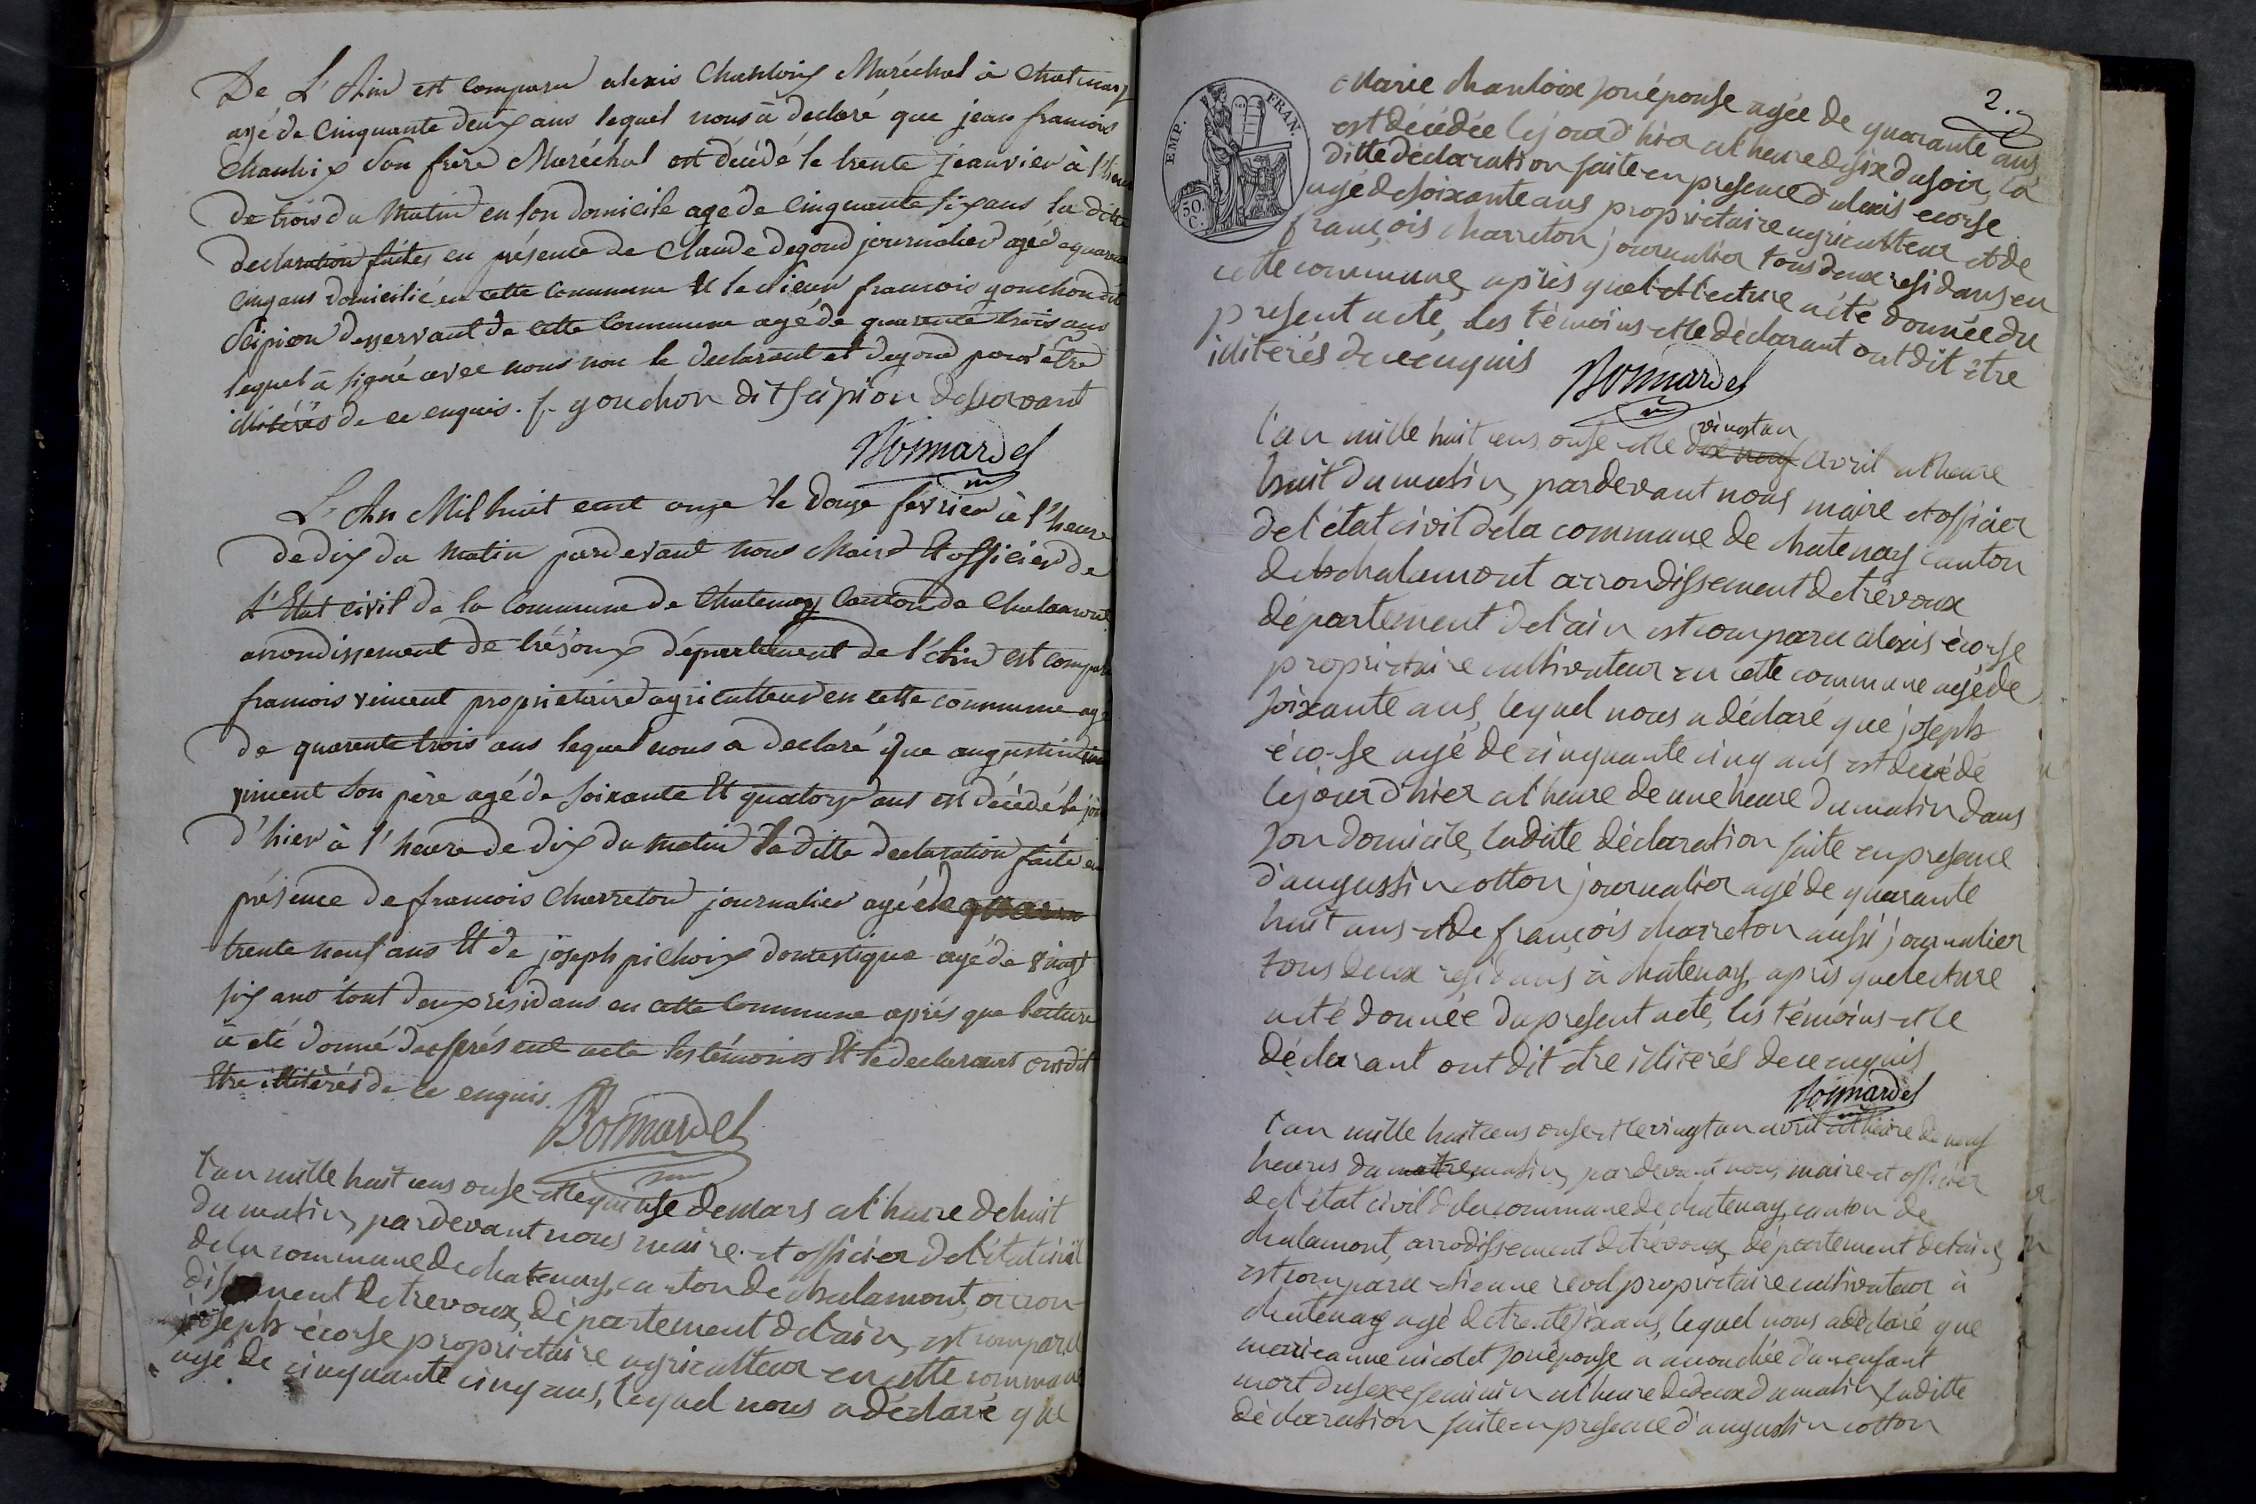 De L'Ain est comparu alexis Chanloix Maréchal à Chatenay
agé de Cinquante deux ans lequel nous à declaré que jean francois
Chanloix Son frère Maréchal est décédé le trente jeanvier à l'heure
de trois du Matin en son domicile agé de Cinquante six ans la ditte
declaration faites en présence de Claude degoud journalier agé de quarante
Cinq ans domicilié en cette Commune Et le sieur francois gonchon dit
Scipion desservant de cette Commune agé de quarente trois ans
lequel à signé avec nous non le declarant et degoud pour être
illitérés de ce enquis. f. gonchon dit scipion desservant
Bonnardel
L'An Mil huit cent onze le douze fevrier à l'heure
de dix du Matin pardevant nous Maire Et officier de
L'Etat civil de la Commune de Chatenay Canton de Chalamont
arrondissement de trévoux département de l'Ain est comparu
francois vincent proprietaire agriculteur en cette commune agé
de quarente trois ans lequel nous a declaré que augustin
vincent Son père agé de soixante Et quatorze ans est décédé le jour
d'hier à l'heure de dix du Matin la ditte declaration faite en
présence de francois Charreton journalier agé de quaran
trente neuf ans Et de joseph pichoix domestique agé de vingt
six ans tout deux résidans en cette Commune après que lecture
à eté donné du présent acte les témoins Et le declarant ont dit
Etre illitérés de ce enquis.
Bonnardel
l'an mille huit cens onse et le quinse de mars a l'heure de huit
du matin, pardevant nous maire et officier de l'état civil
de la commune de chatenay, canton de chalamont, arron-
dissement de trevoux, département de l'ain, est comparu
joseph écorse proprietaire agriculteur en cette commune
agé de cinquante cinq ans, lequel nous a déclaré que
2.
EMP. FRAN.
50. C.
Marie chanloix son épouse agée de quarante ans
est décédée le jourd'hier a l'heure de six du soir, la
ditte déclaration faite en presence d'alexis ecorse
agé de soixante ans proprietaire agriculteur et de
françois charreton journalier tous deux residans en
cette commune, après que lecture a été donnée du
present acte, les témoins et le déclarant ont dit être
illiterés de ce enquis
Bonnardel
vingt un
l'an mille huit cens onse et le dix neuf avril a l'heure
huit du matin, pardevant nous maire et officier
de l'état civil de la commune de chatenay canton
de chalamont arrondissement de trévoux
département de l'ain est comparu alexis écorse
proprietaire cultivateur en cette commune agé de
soixante ans, lequel nous a déclaré que joseph
écorse agé de cinquante cinq ans est décédé
le jour d'hier a l'heure de une heure du matin dans
son domicile, la ditte déclaration faite en presence
d'augustin cotton journalier agé de quarante
huit ans et de françois charreton aussi journalier
tous deux residans à chatenay, après que lecture
a été donnée du present acte, les témoins et le
déclarant ont dit etre illiterés de ce enquis
Bonnardel
l'an mille huit cens onse et le vingt un avril a l'heure de neuf
heures du maitre matin, pardevant nous, maire et officier
de l'état civil de la commune de chatenay, canton de
chalamont, arrodissement de trévoux, département de l'ain,
est comparu etienne revol proprietaire cultivateur à
chatenay agé de trente six ans, lequel nous a déclaré que
marie anne nicolet son épouse a accouchée d'un enfant
mort du sexe feminin a l'heure de deux du matin, la ditte
déclaration faite en presence d'augustin cotton